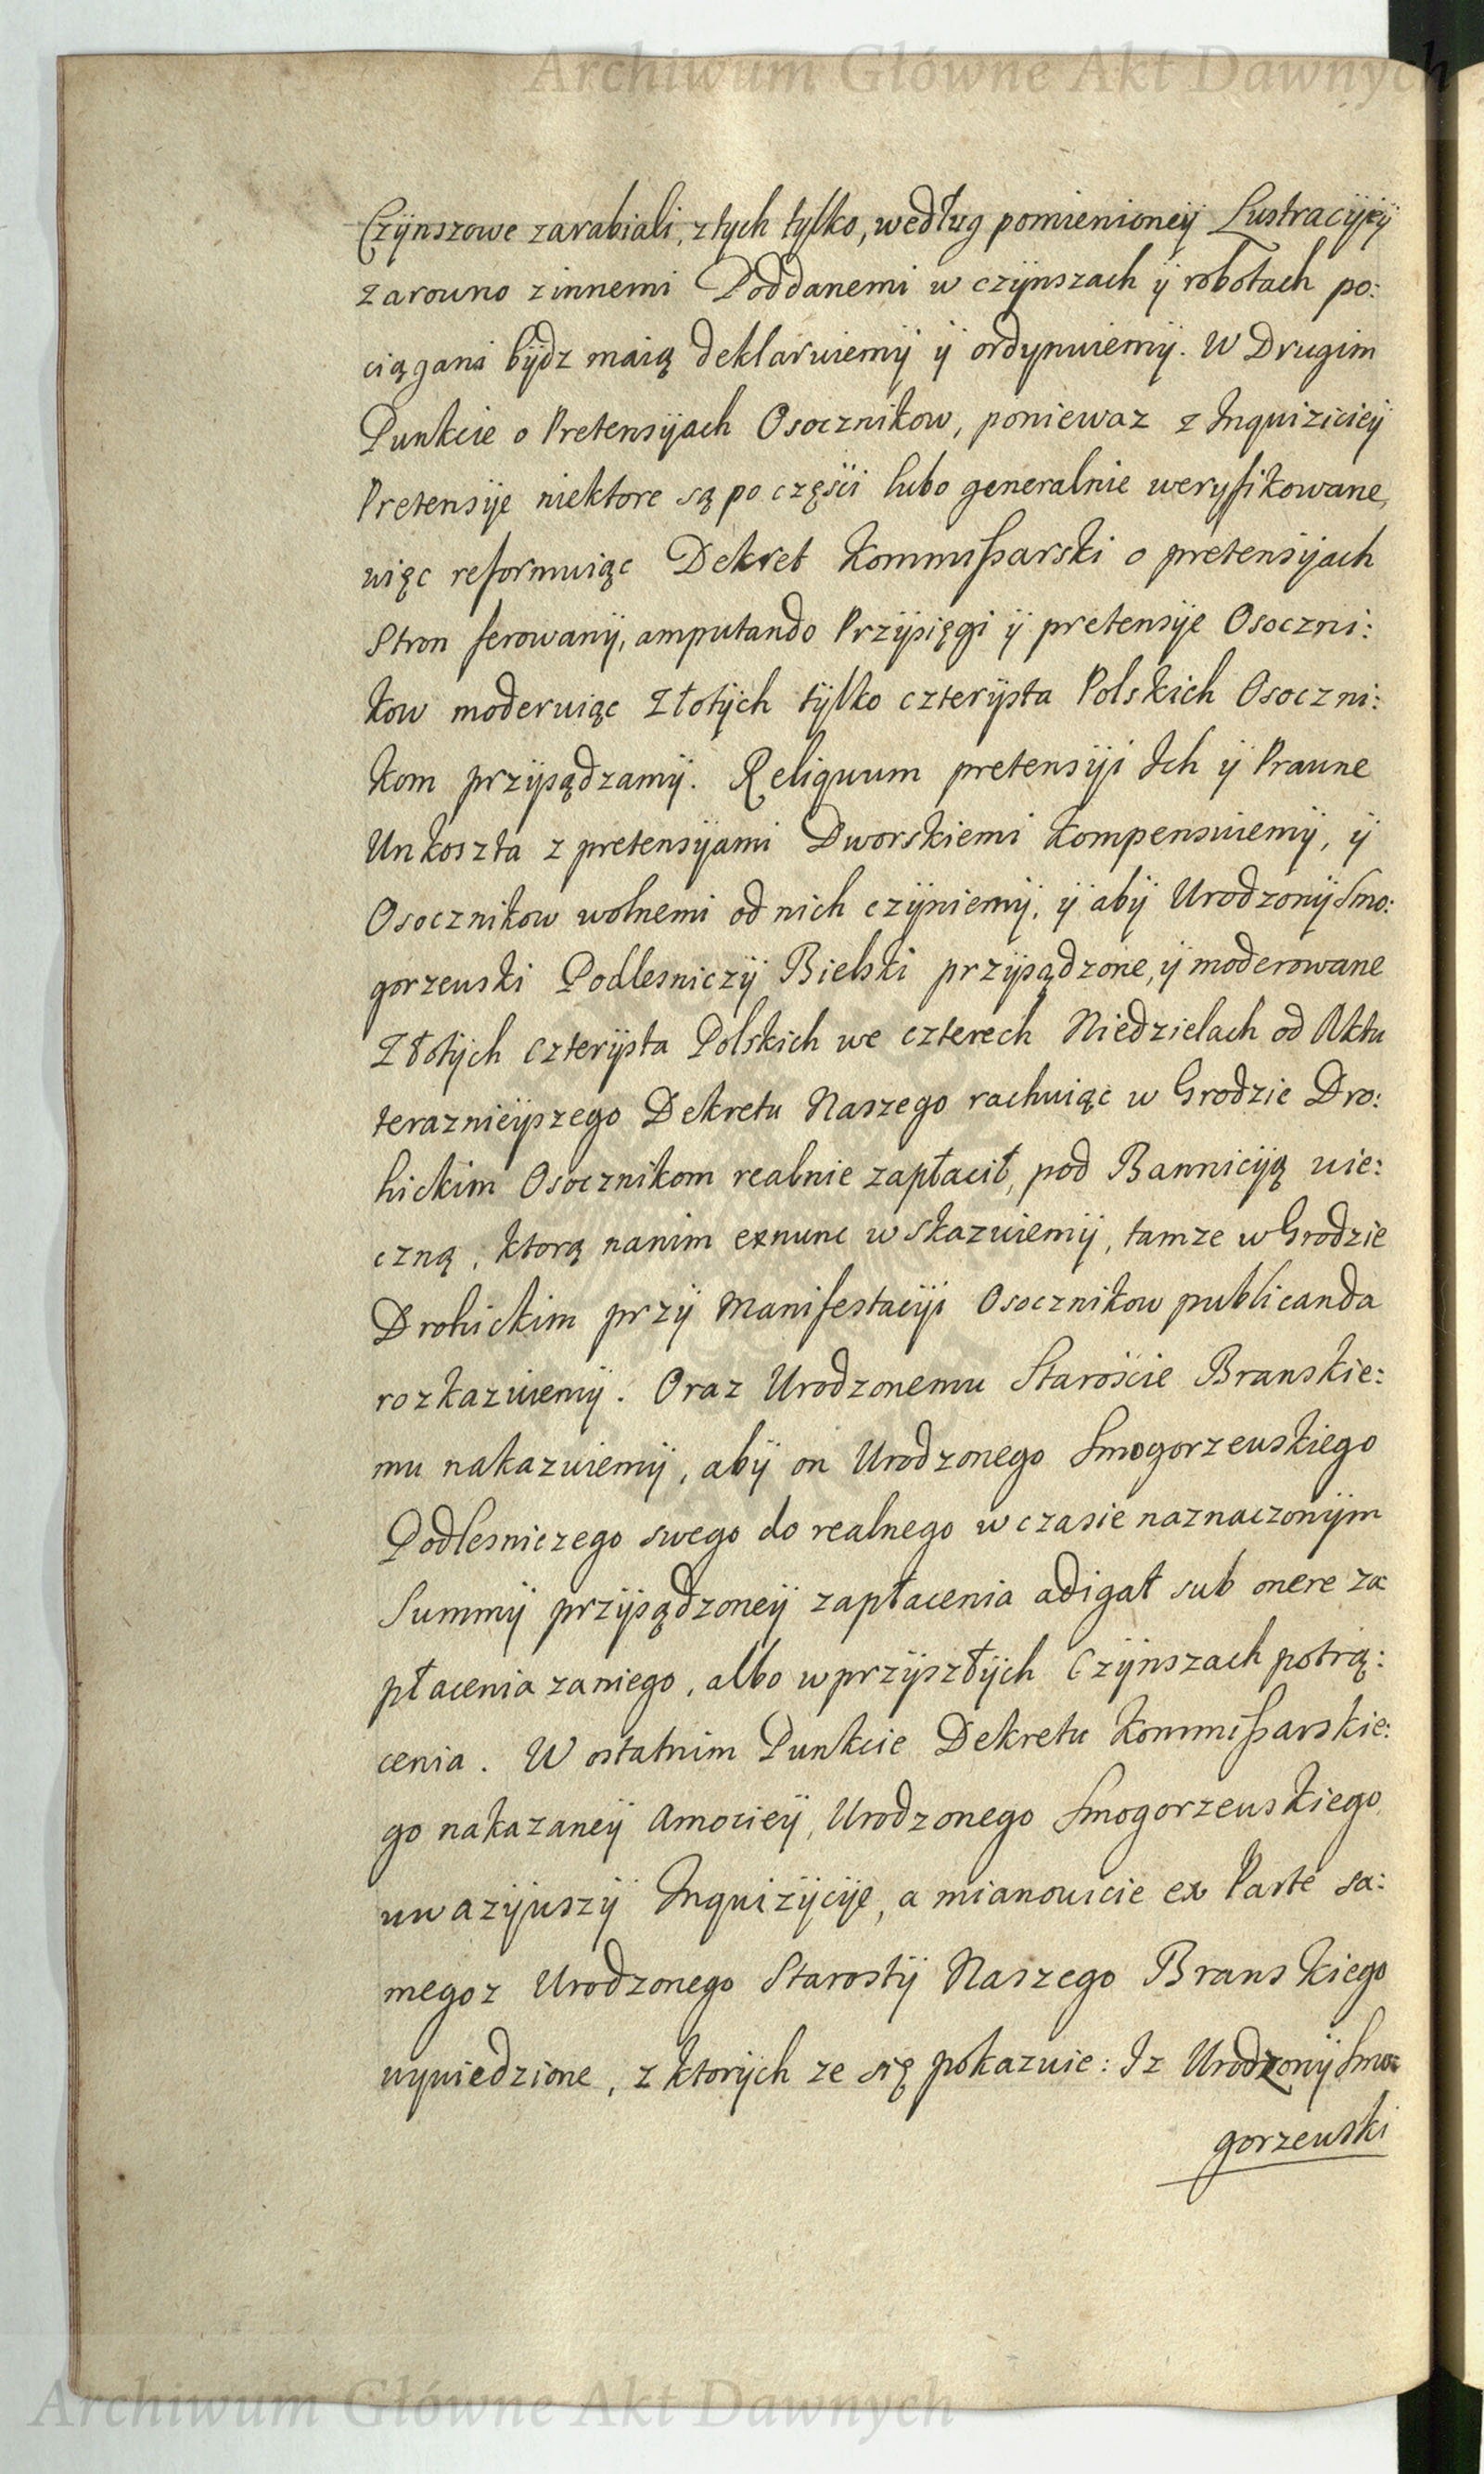 Archiwum Główne Akt Dawnych
Czÿnszowe zarabiali, z tych tylko, według pomienioneÿ Lustracÿjeÿ
zarowno z innemi Poddanemi w czÿnszach ÿ robotach po:
ciągani bÿdz maią deklaruiemÿ ÿ ordynuiemÿ. W Drugim
Punkcie o Pretensÿach Osocznikow, poniewaz z Inquizicieÿ
Pretensÿe niektore są po częsci lubo generalnie weryfikowane,
więc reformuiąc Dekret Kommißarski o pretensÿach
Stron ferowanÿ, amputando Przÿsięgi ÿ pretensÿe Osoczni:
kow moderuiąc Złotÿch tÿlko czterÿsta Polskich Osoczni:
kom przÿsądzamÿ. Reliquum pretensÿi Ich ÿ Prawne
Unkoszta z pretensÿami Dworskiemi kompensuiemÿ, ÿ
Osocznikow wolnemi od nich czÿniemÿ, ÿ abÿ Urodzonÿ Smo:
gorzewski Podlesniczÿ Bielski przÿsądzone, ÿ moderowane
Złotÿch czterÿsta Polskich we czterech Niedzielach od Aktu
teraznieÿszego Dekretu Naszego rachuiąc w Grodzie Dro:
hickim Osocznikom realnie zapłacił, pod Bannicÿą wie:
czną, ktorą nanim exnunc wskazuiemÿ, tamze w Grodzie
Drohickim przÿ Manifestacÿi Osocznikow publicanda
rozkazuiemÿ. Oraz Urodzonemu Staroście Branskie:
mu nakazuiemÿ, abÿ on Urodzonego Smogorzewskiego
Podlesniczego swego do realnego w czasie naznaczonÿm
Summÿ przÿsądzoneÿ zapłacenia adigał sub onere za
płacenia zaniego, albo w przÿszłÿch Czÿnszach potrą:
cenia. W ostatnim Punkcie Dekretu Kommißarskie:
go nakazaneÿ Amocieÿ, Urodzonego Smogorzewskiego
uwazÿwszÿ Inquizÿcÿę, a mianowicie ex Parte sa:
megoz Urodzonego Starostÿ Naszego Branskiego
wywiedzione, z ktorÿch ze się pokazuie: Iz Urodzonÿ Smo:
gorzewski
Archiwum Główne Akt Dawnych